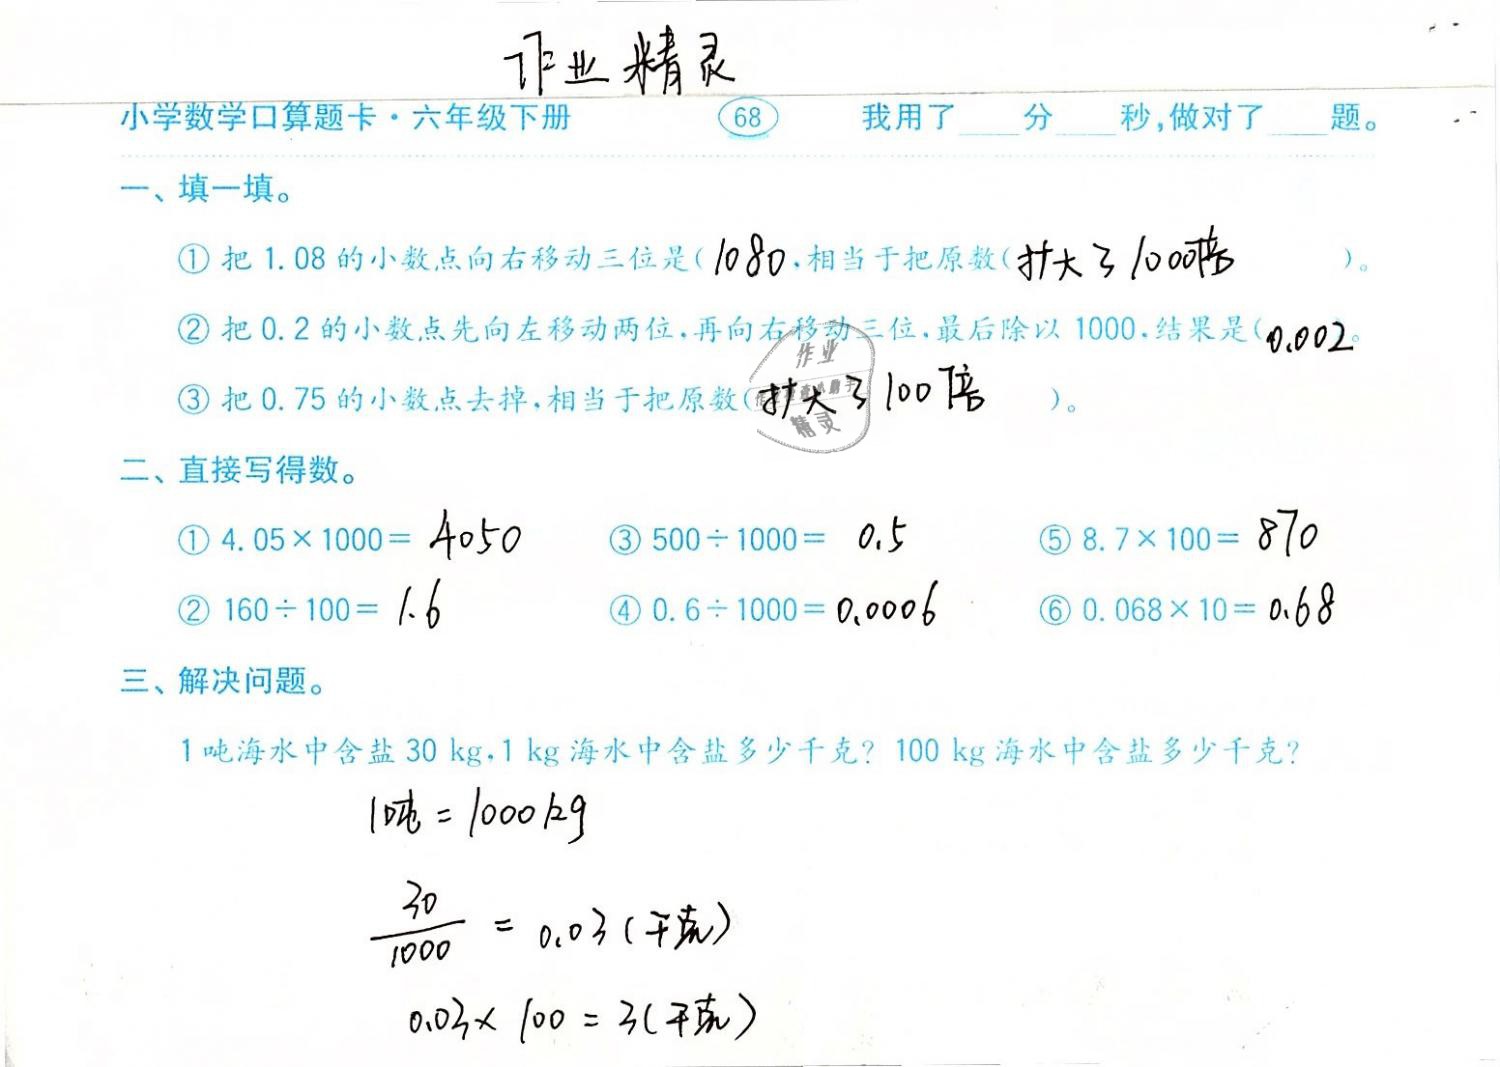 作业精灵
小学数学口算题卡·六年级下册 68 我用了____分____秒,做对了____题。
一、填一填。
① 把 1.08 的小数点向右移动三位是(1080,相当于把原数(扩大了1000倍)。
② 把 0.2 的小数点先向左移动两位,再向右移动三位,最后除以 1000,结果是(0.002)。
③ 把 0.75 的小数点去掉,相当于把原数(扩大了100倍)。
作业
精灵
二、直接写得数。
① 4.05×1000= 4050 ③ 500÷1000= 0.5 ⑤ 8.7×100= 870
② 160÷100= 1.6 ④ 0.6÷1000= 0.0006 ⑥ 0.068×10= 0.68
三、解决问题。
1 吨海水中含盐 30 kg,1 kg 海水中含盐多少千克? 100 kg 海水中含盐多少千克?
1吨=1000kg
30/1000 = 0.03(千克)
0.03×100=3(千克)